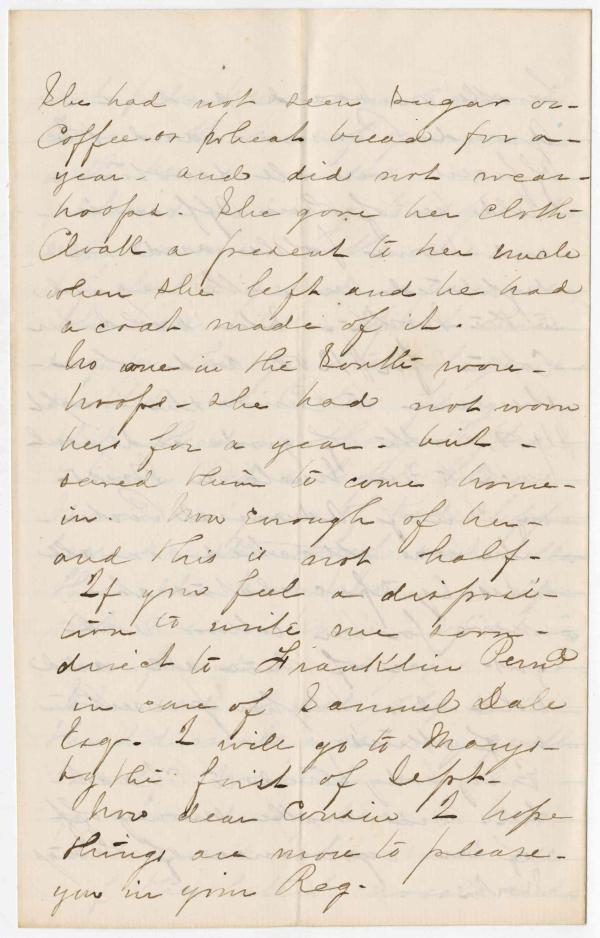 She had not seen sugar or-
Coffee or Wheat bread for a-
year - and did not wear-
hoops. She gave her cloth-
Cloak a present to her uncle
when she left and he had
a coat made of it.
No one in the South wore-
hoops - she had not worn
hers for a year - but -
saved them to come home-
in. Now enough of her-
and this is not half-
If you feel a disposi-
tion to write me soon-
direct to Franklin Penna
in care of Samuel Dale
Esq. I will go to Marys-
by the first of Sept-
Now dear Cousin I hope
things are more to please-
you in your Reg.